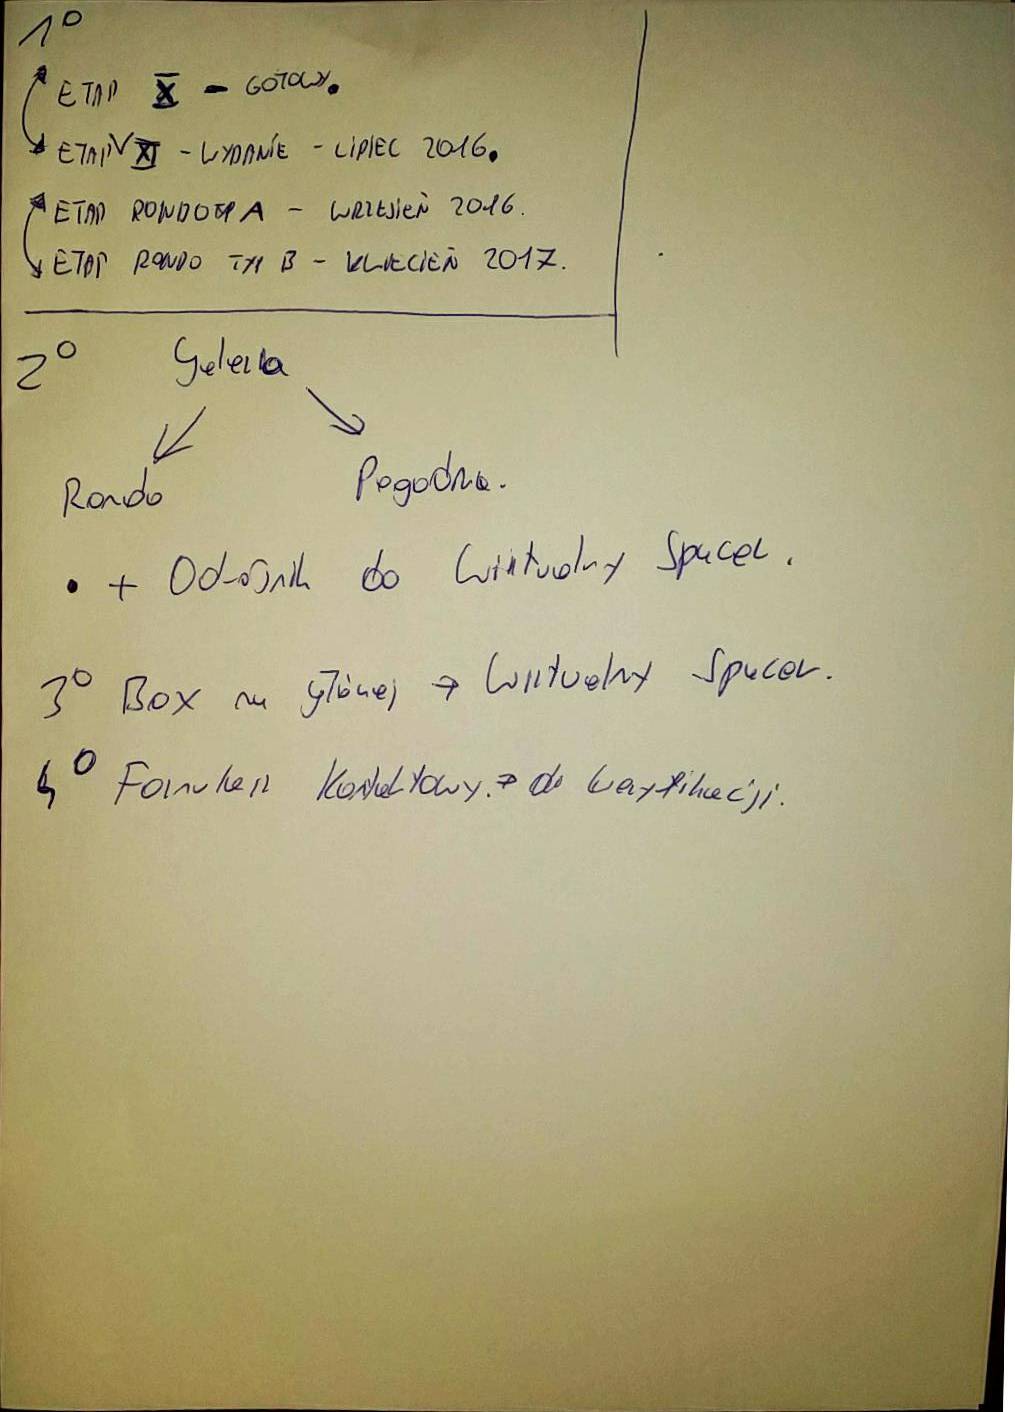 1°
ETAP X - GOTOWY.
ETAP XI - WYDANIE - LIPIEC 2016.
ETAP RONDO TYP A - WRZESIEŃ 2016.
ETAP RONDO TYP B - KWIECIEŃ 2017.
2° Galeria
Rondo Pogodna.
• + Odnośnik do Wirtualny Spacer.
3° Box na głównej → Wirtualny Spacer.
4° Formularz Kontaktowy. → do weryfikacji.